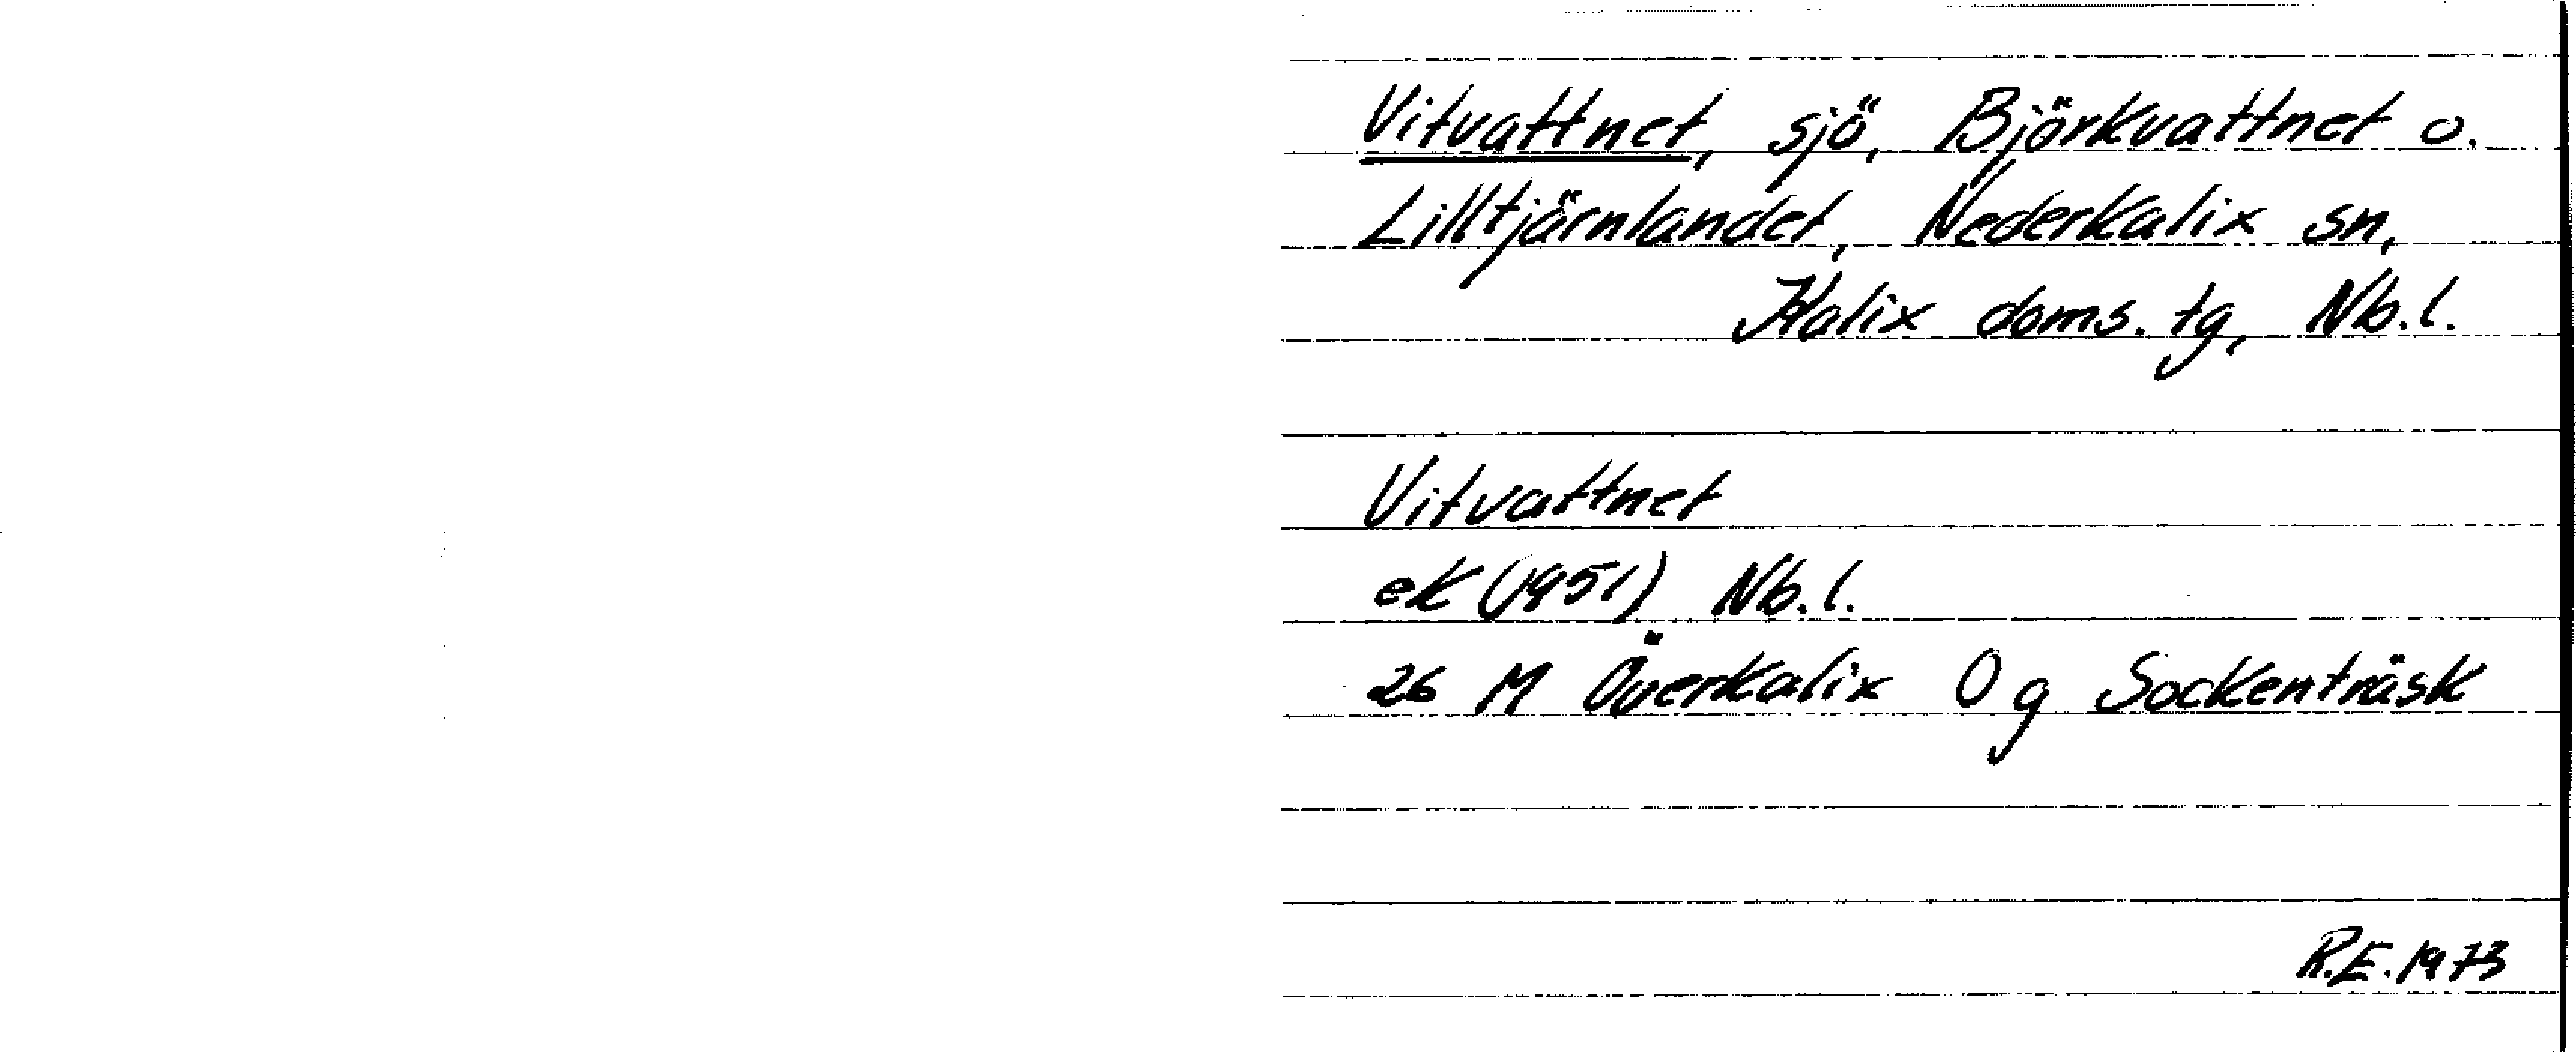 Vitvattnet, sjö, Björkvattnet o.
Lilltjärnlandet, Nederkalix sn,
Kalix doms. tg, Nb.l.
Vitvattnet
ek (1951) Nb.l.
26 M Överkalix 0 g Sockenträsk
R.E. 1973